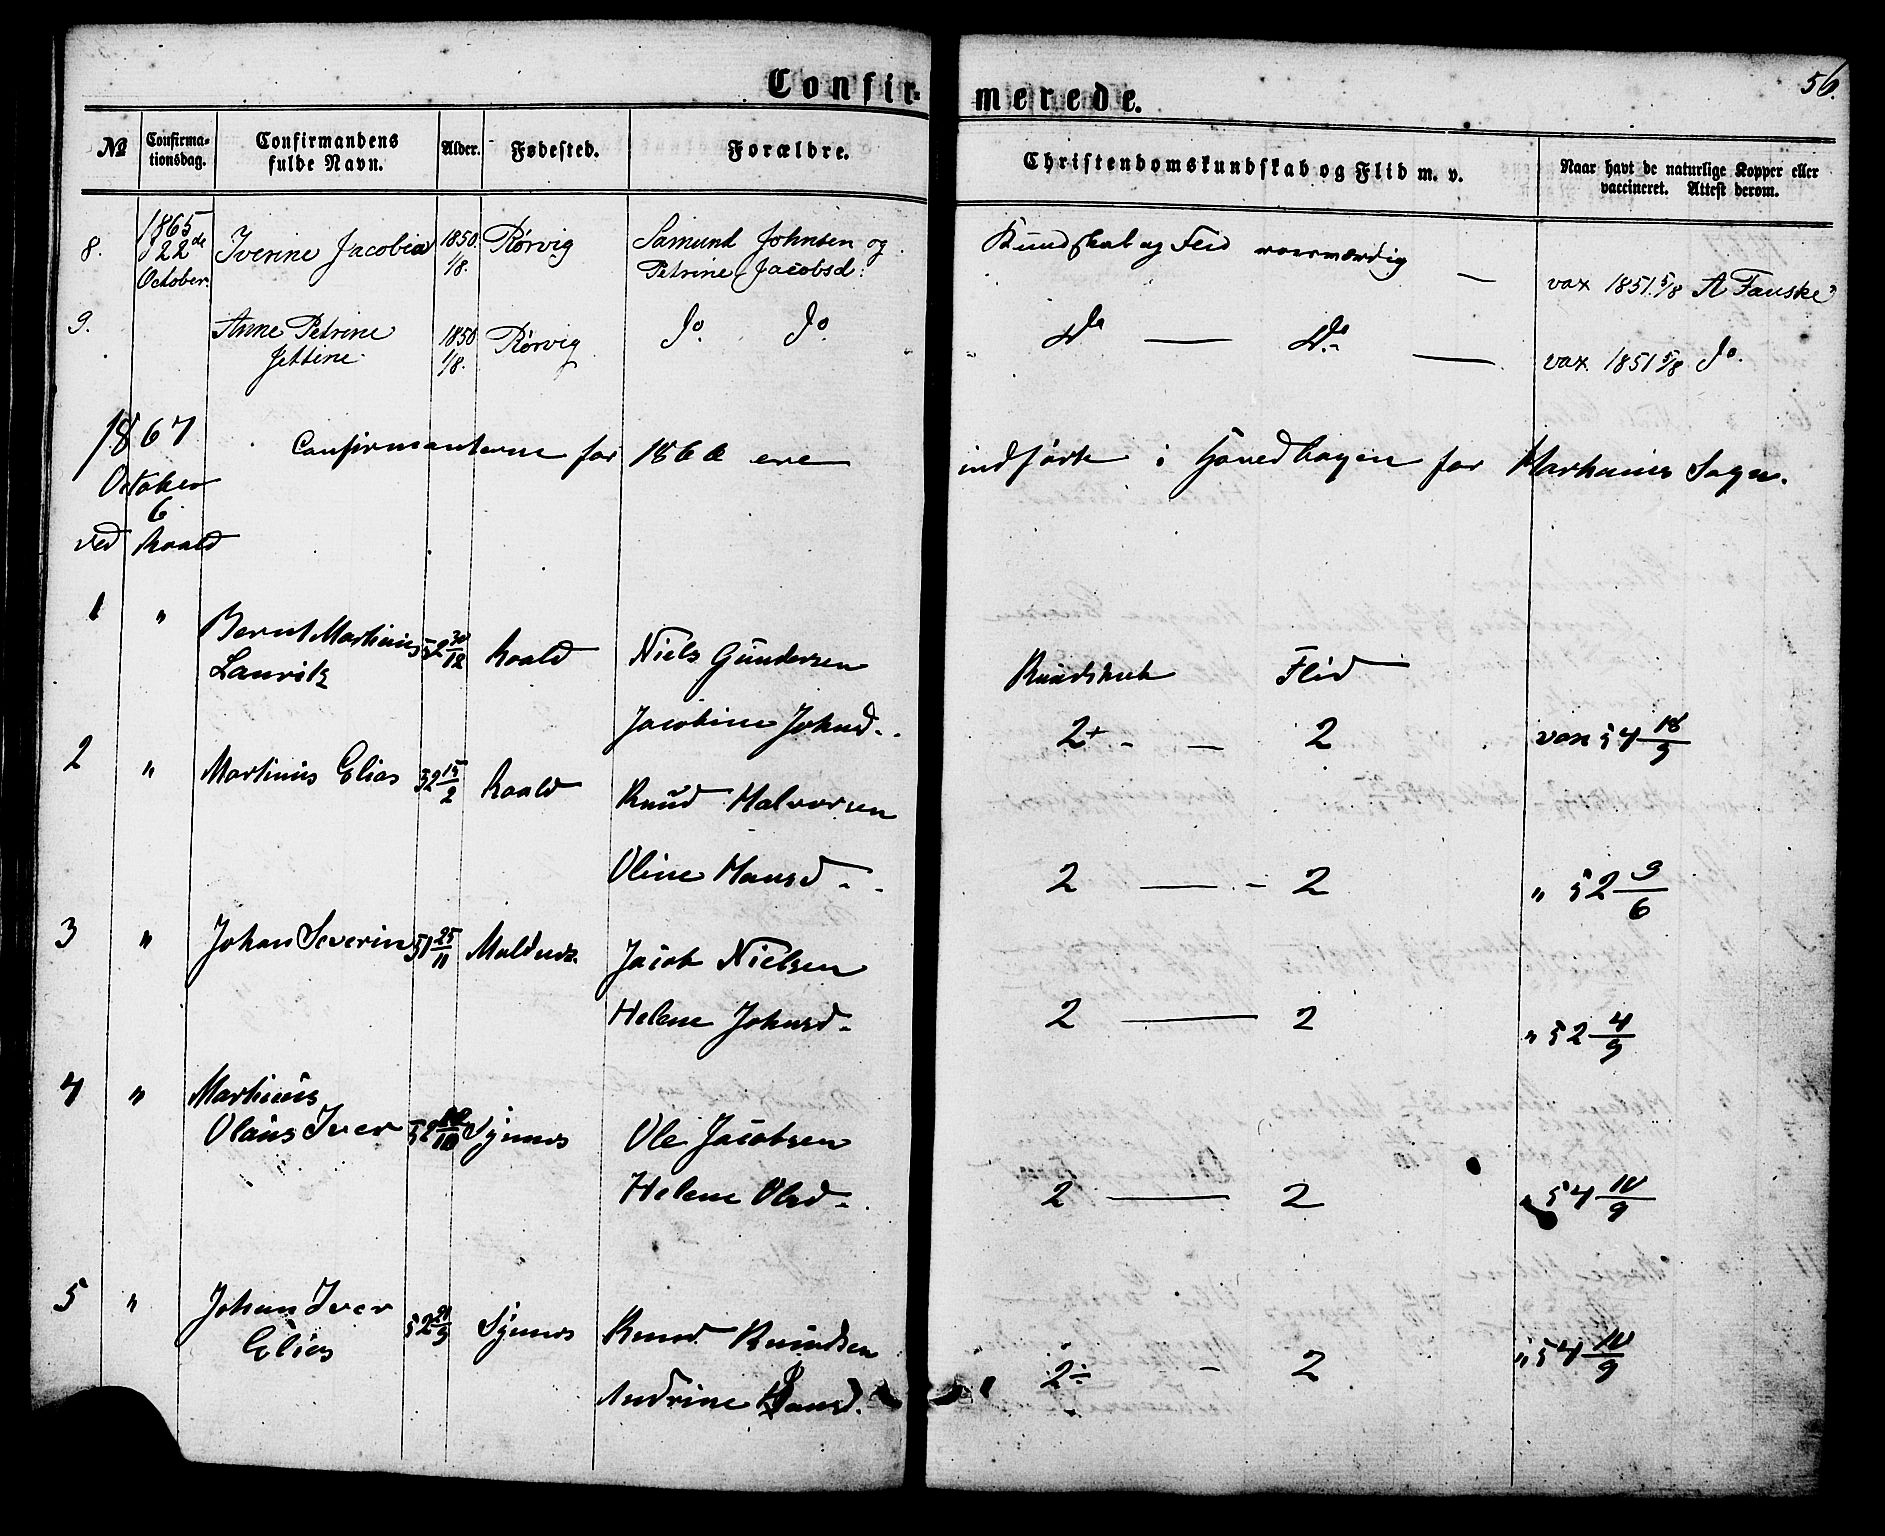 Confir-merede.
56.
№ Confirma-tionsdag. Confirmandens fulde Navn. Alder. Fødested. Forældre. Christendomskundskab og Flid m. v. Naar havt de naturlige Kopper eller vaccineret. Attest derom.
8. 1865 22de October. Iverine Jacobia 1850 1/8. Rørvig Samund Johnsen og Petrine Jacobsd: Kundskab og Flid roesværdig — vax 1851 5/8 A Fauske
9. Anne Petrine Jettine 1850 1/8. Rørvig Do. Do. Do — Do. — vax 1851 5/8 Do.
1867 Confirmanterne for 1866 ere indførte i Hovedbogen for Sogn.
October
6
ved Roald
1 " Bernt Martinus Laurik 52 30/12 Roald Niels Gundersen
Kundskab Flid
Jacobine Johnsd. 2+ - — 2 vax 54 18/9
2 " Martinus Elias 52 15/2 Roald Knud Halvorsen
Oline Hansd - 2 — - 2 " 52 9/6
3 " Johan Severin 51 25/11 Moldnes. Jacob Nielsen
Helene Johnsd - 2 — 2 " 52 4/9
4 " Martinus
Olaus Iver 52 Synnes Ole Jacobsen
Helene Olsd - 2 — 2 " 54 10/9
5 " Johan Iver Elias 52 21/9 Synnes Knud Knudsen
Andrine Hansd. 2÷ - 2 " 54 10/9